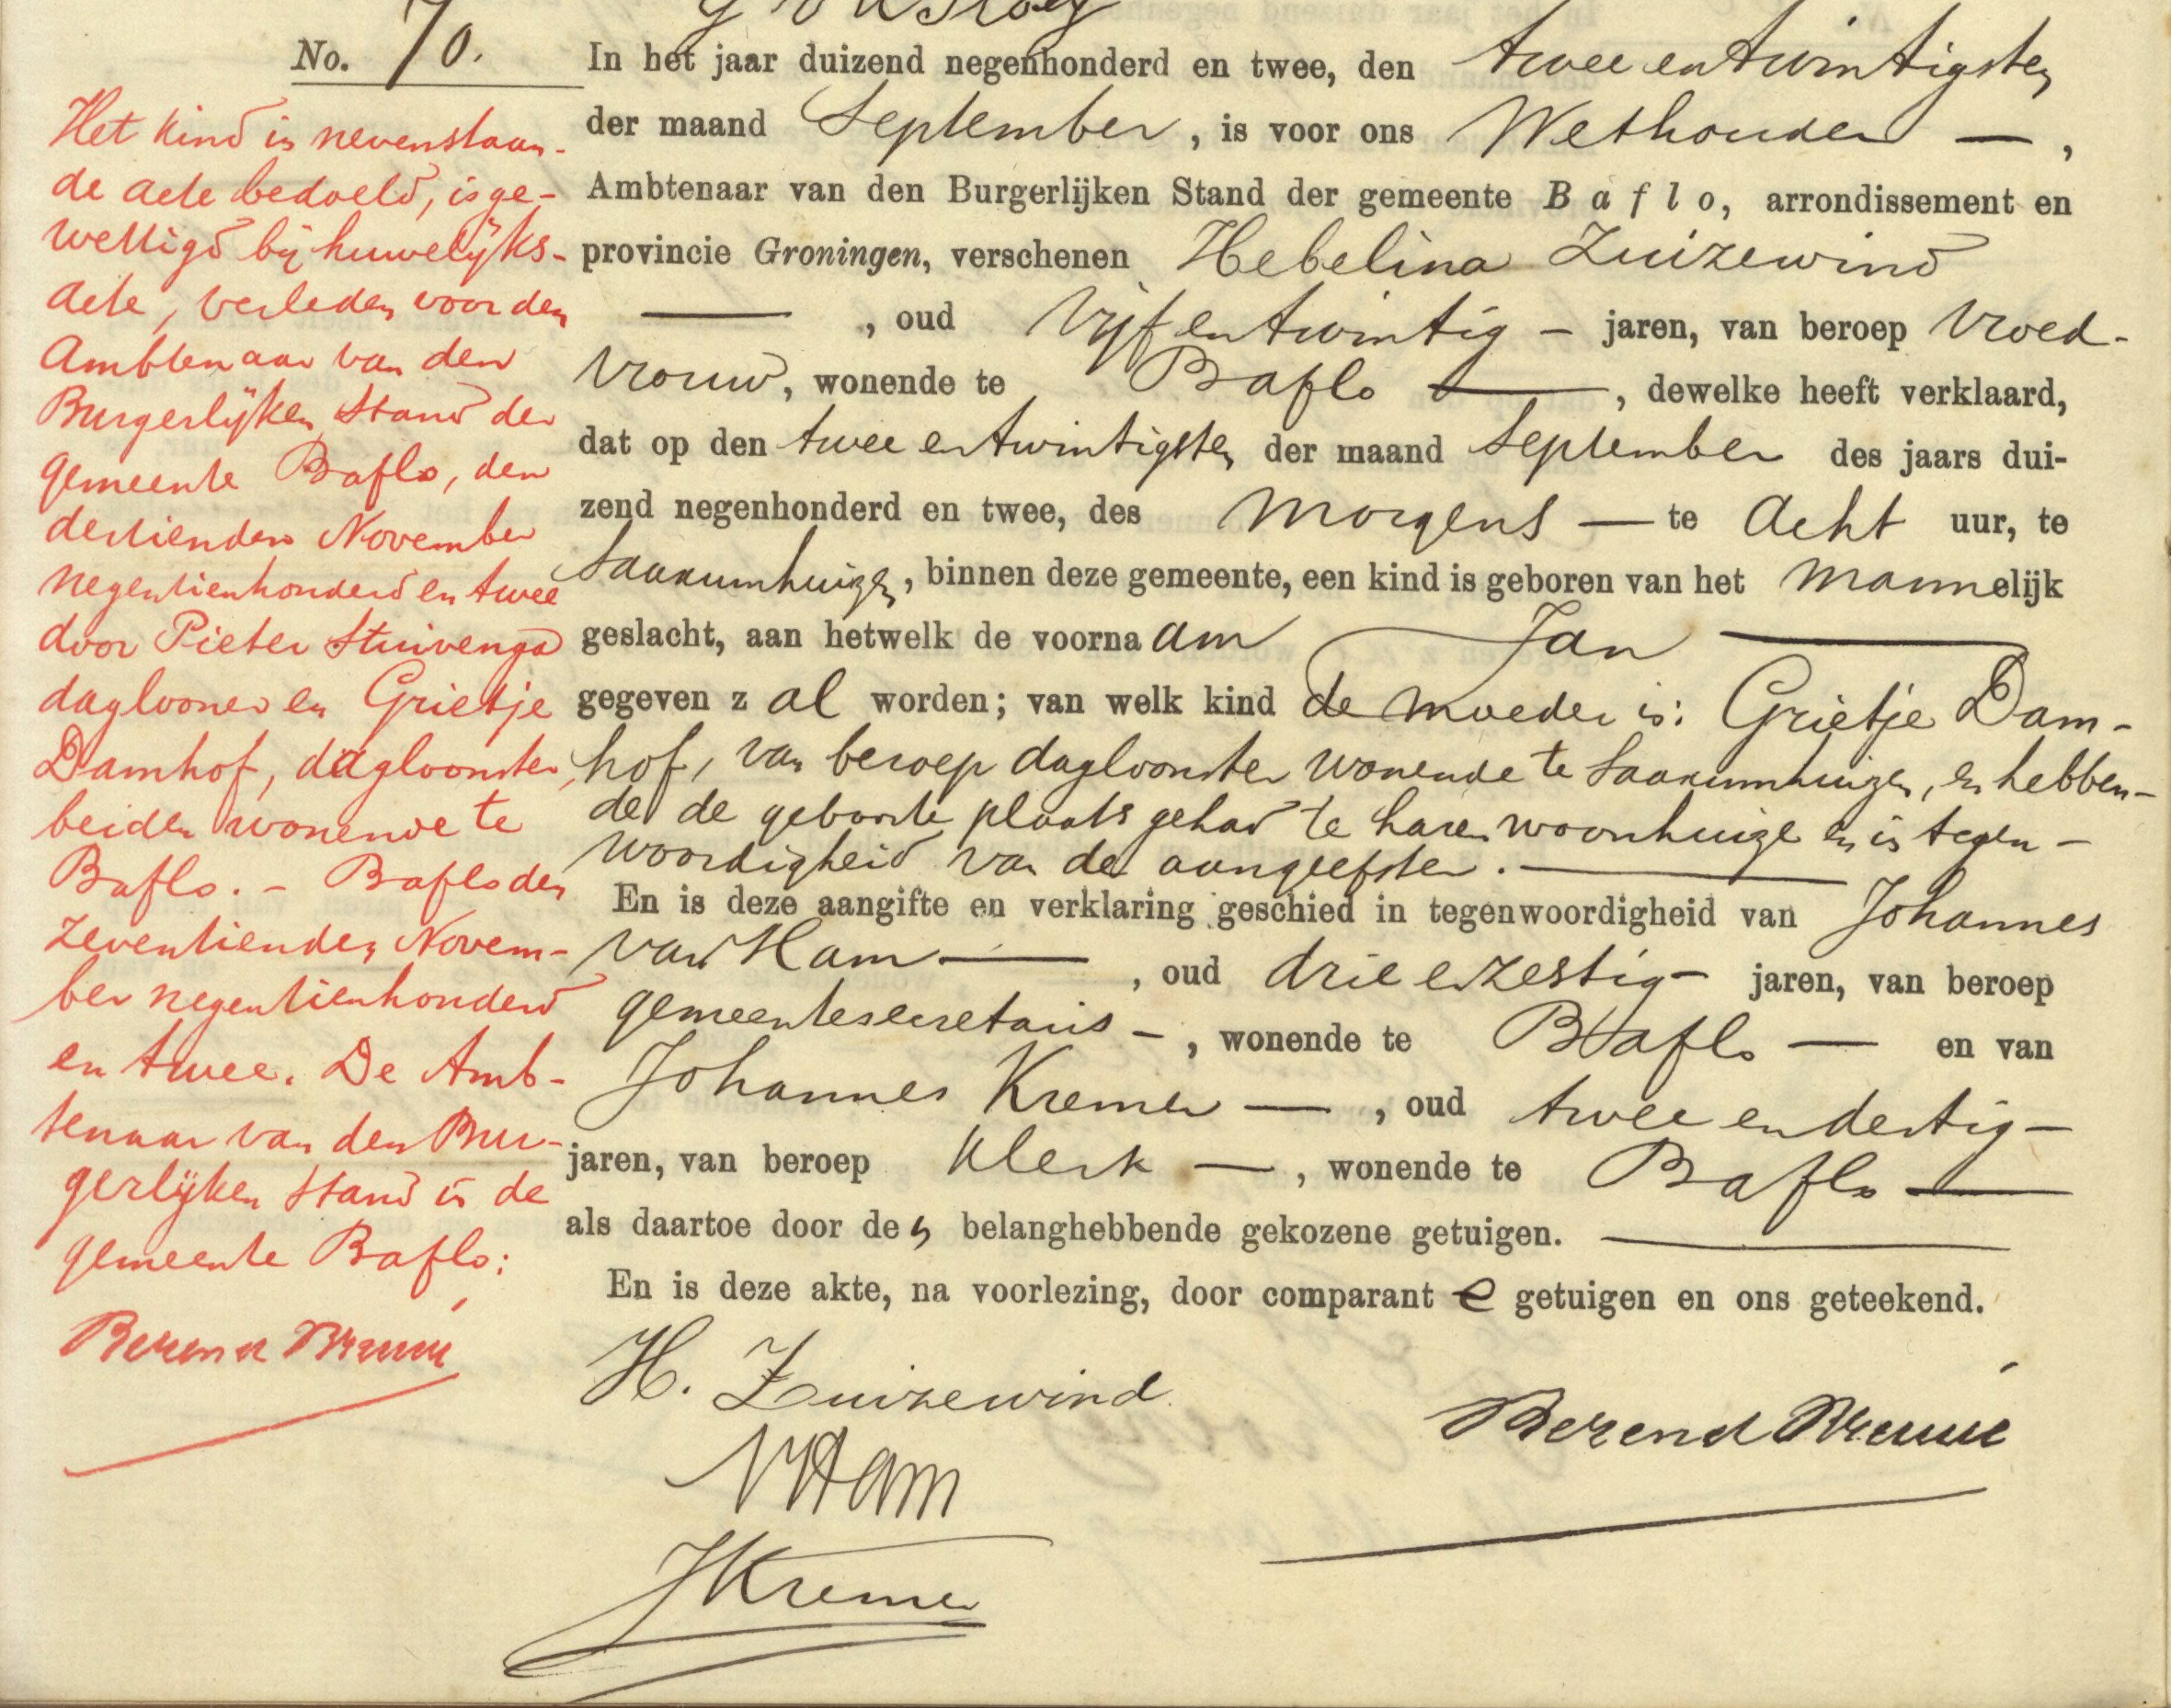 No. 70.
Het kind in nevenstaan-
de acte bedoeld, is ge-
wettigd bij huwelijks-
acte, verleden voor den
Ambtenaar van den
Burgerlijken Stand der
gemeente Baflo, den
dertienden November
negentienhonderd en twee
door Pieter Stuivenga
daglooner en Grietje
Damhof, dagloonster,
beiden wonende te
Baflo. - Baflo den
zeventienden Novem-
ber negentienhonderd
en twee. De Amb-
tenaar van den Bur-
gerlijken Stand in de
gemeente Baflo:
Berend
In het jaar duizend negenhonderd en twee, den twee en twintigsten
der maand September, is voor ons Wethouder —,
Ambtenaar van den Burgerlijken Stand der gemeente Baflo, arrondissement en
provincie Groningen, verschenen Hebelina Zuizewind
—, oud vijf en twintig — jaren, van beroep vroed-
vrouw, wonende te Baflo —, dewelke heeft verklaard,
dat op den twee en twintigsten der maand September des jaars dui-
zend negenhonderd en twee, des morgens — te acht uur, te
Saaxumhuizen, binnen deze gemeente, een kind is geboren van het mannelijk
geslacht, aan hetwelk de voornaam Jan —
gegeven zal worden; van welk kind de moeder is: Grietje Dam-
hof, van beroep dagloonster wonende te Saaxumhuizen, en hebben-
de de geboorte plaats gehad te haren woonhuize en in tegen-
woordigheid van de aangeefster. —
En is deze aangifte en verklaring geschied in tegenwoordigheid van Johannes
van Ham —, oud drie en zestig — jaren, van beroep
gemeentesecretaris —, wonende te Baflo — en van
Johannes Kremer —, oud twee en dertig —
jaren, van beroep klerk —, wonende te Baflo —
als daartoe door den belanghebbende gekozene getuigen. —
En is deze akte, na voorlezing, door comparante getuigen en ons geteekend.
H. Zuizewind
Berend
VHam
JKremer